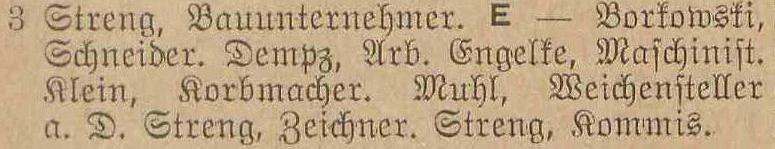 3 Streng, Bauunternehmer. E — Borkowski,
Schneider. Dempz, Arb. Engelke, Maschinist.
Klein, Korbmacher. Muhl, Weichensteller
a. D. Streng, Zeichner. Streng, Kommis.